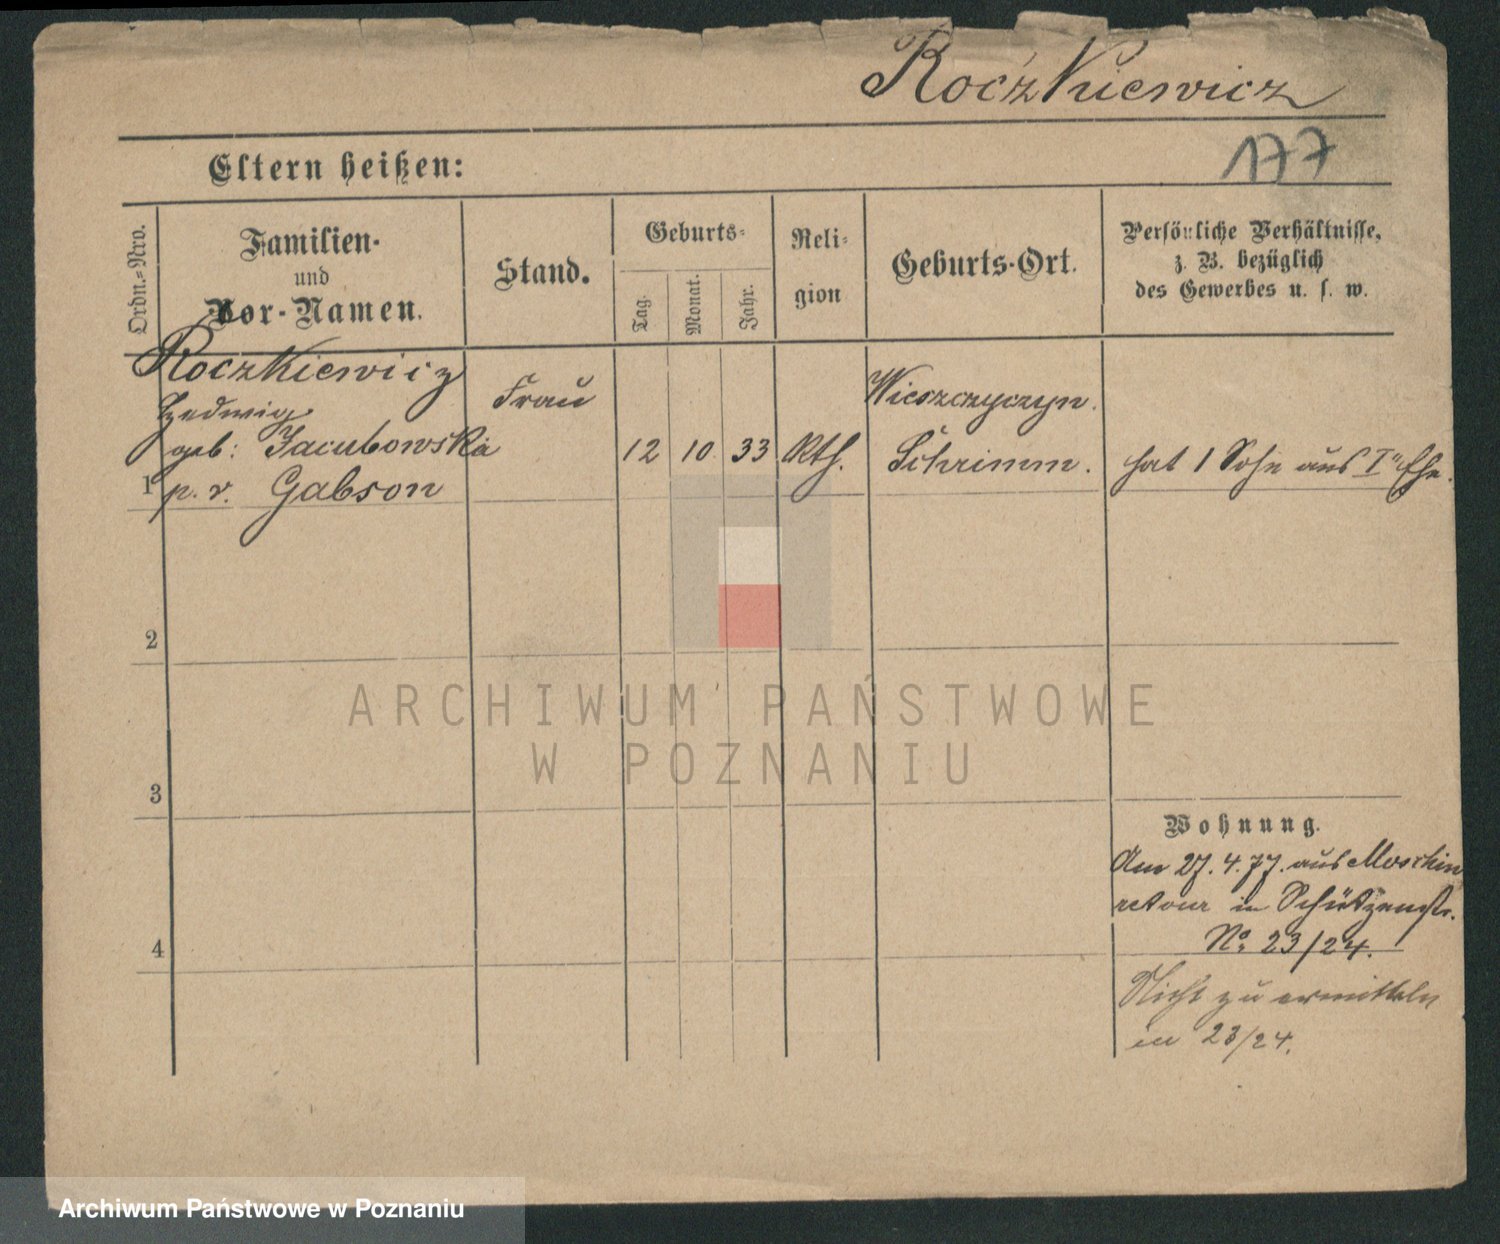 Roczkiewicz
177
Eltern heißen:
Ordn.-Nro.
Familien-
und
Vor-Namen.
Stand.
Geburts-
Tag.
Monat.
Jahr.
Reli-
gion
Geburts-Ort.
Persönliche Verhältnisse,
z. B. bezüglich
des Gewerbes u. s. w.
Roczkiewicz
Hedwig
geb: Jacubowska
1 p. v. Gabson
Frau
12 10 33 Kth.
Wieszczyczyn.
Schrimm.
hat 1 Sohn aus I" Ehe.
2
3
4
Wohnung.
Am 27.4.77. aus Moschin
retour in Schützenstr.
No 23/24.
Nicht zu ermitteln
in 23/24.
ARCHIWUM PAŃSTWOWE
W POZNANIU
Archiwum Państwowe w Poznaniu